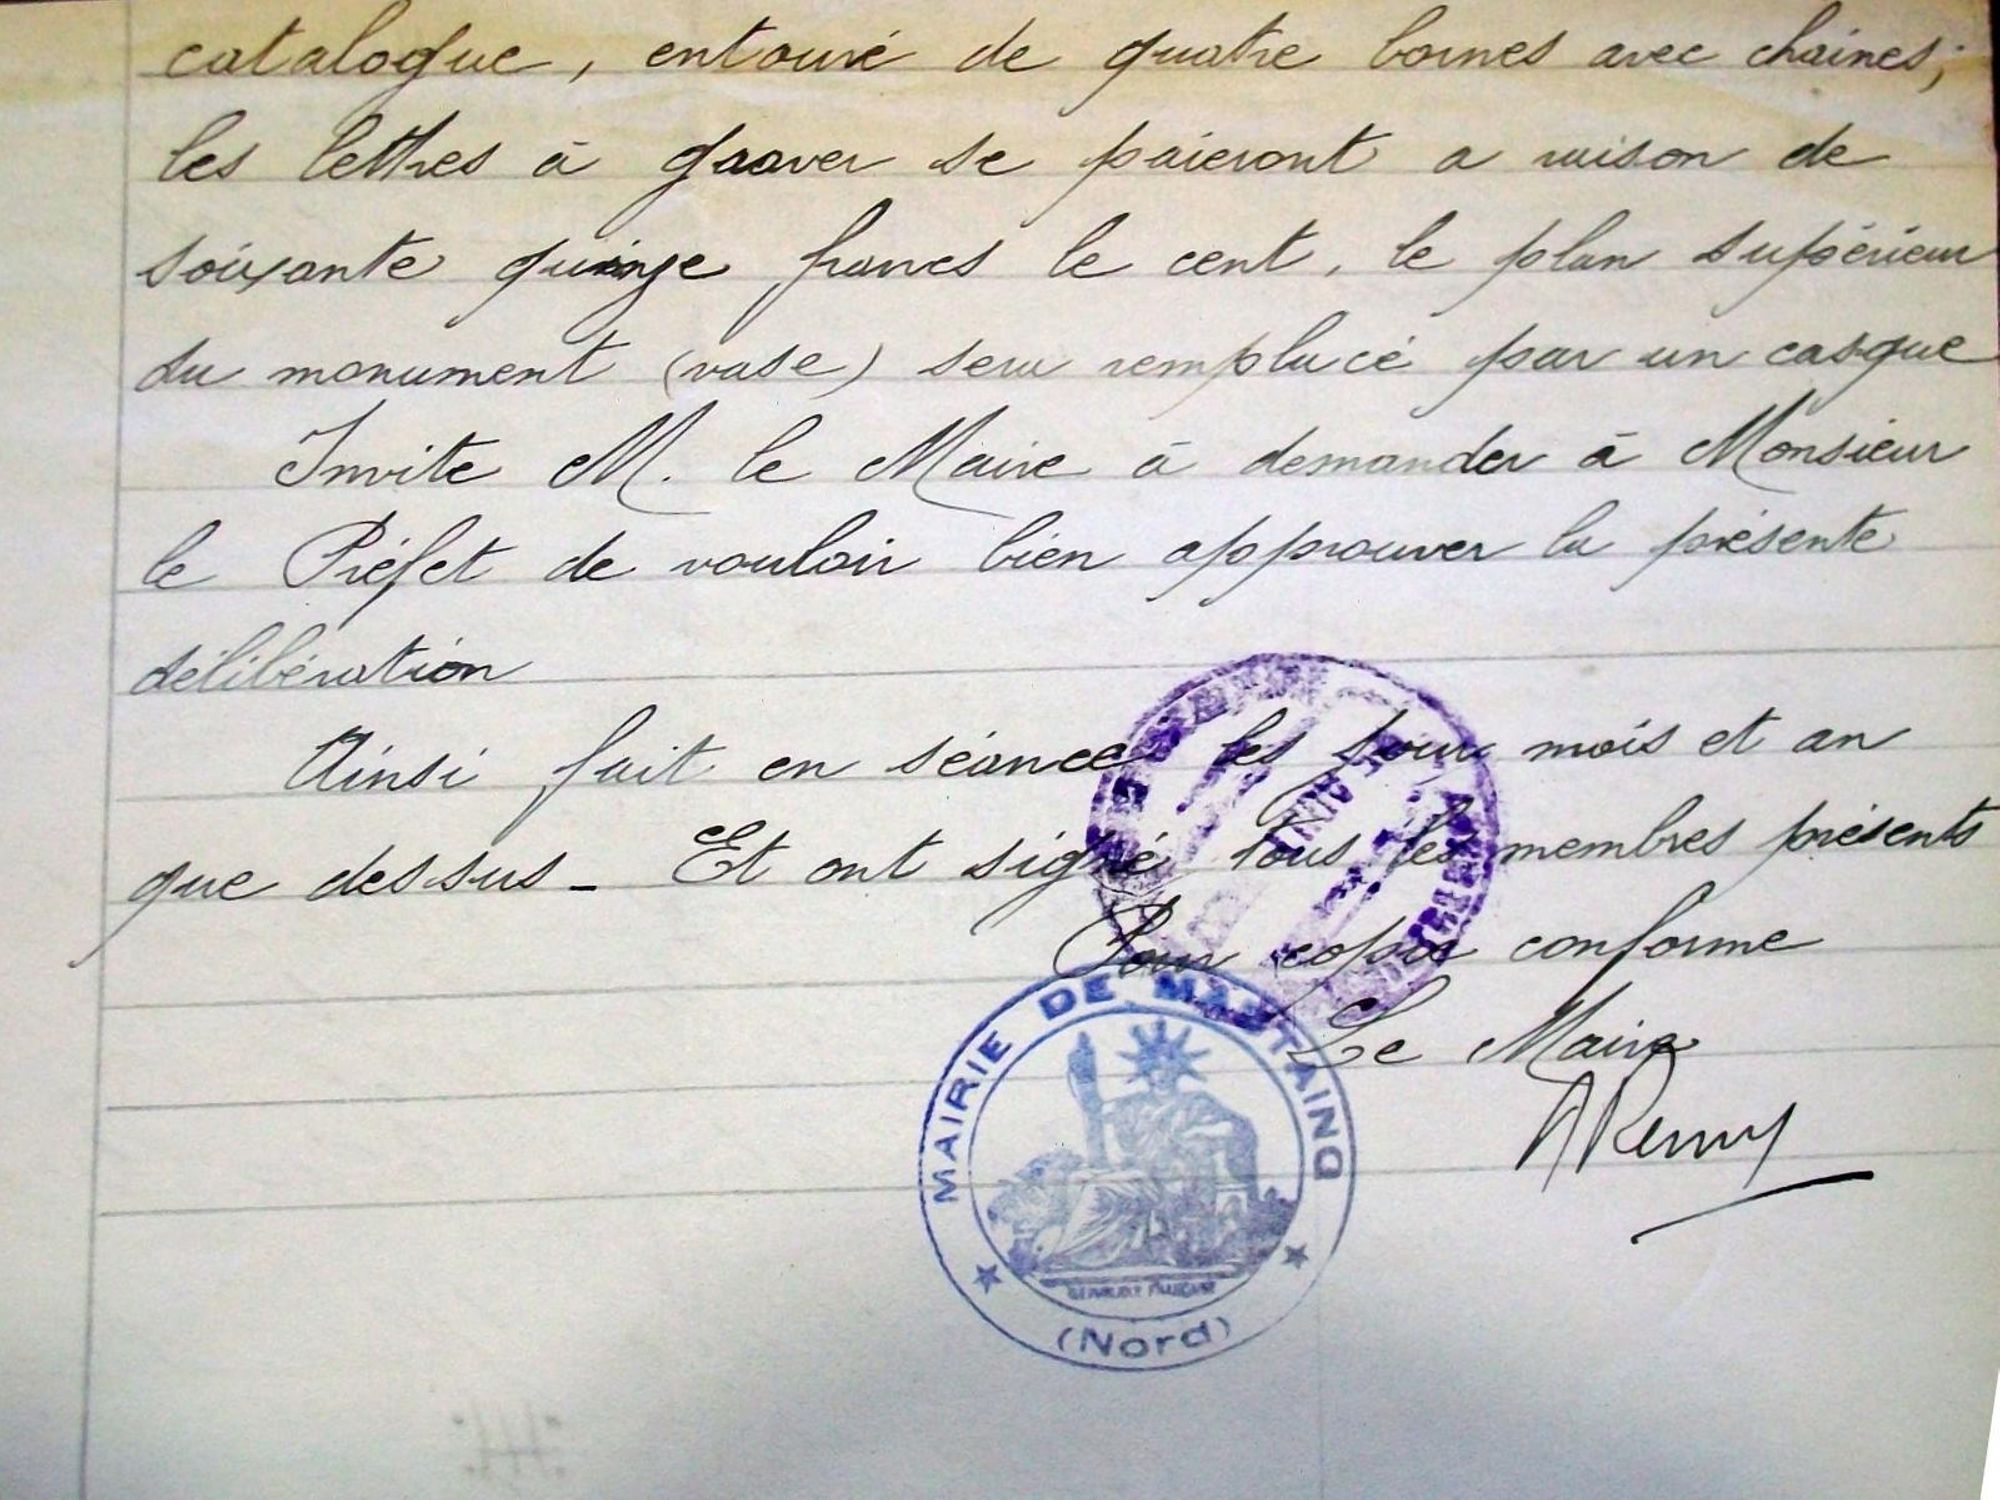 catalogue, entouré de quatre bornes avec chaines;
les lettres à graver se paieront a raison de
soixante quinze francs le cent, le plan supérieur
du monument (vase) sera remplacé par un casque
Invite M. le Maire à demander à Monsieur
le Préfet de vouloir bien approuver la présente
délibération
Ainsi fait en séance les jour mois et an
que dessus - Et ont signé tous les membres présents
Pour copie conforme
Le Maire
A Remy
MAIRIE DE MASTAING
RÉPUBLIQUE FRANÇAISE
(Nord)